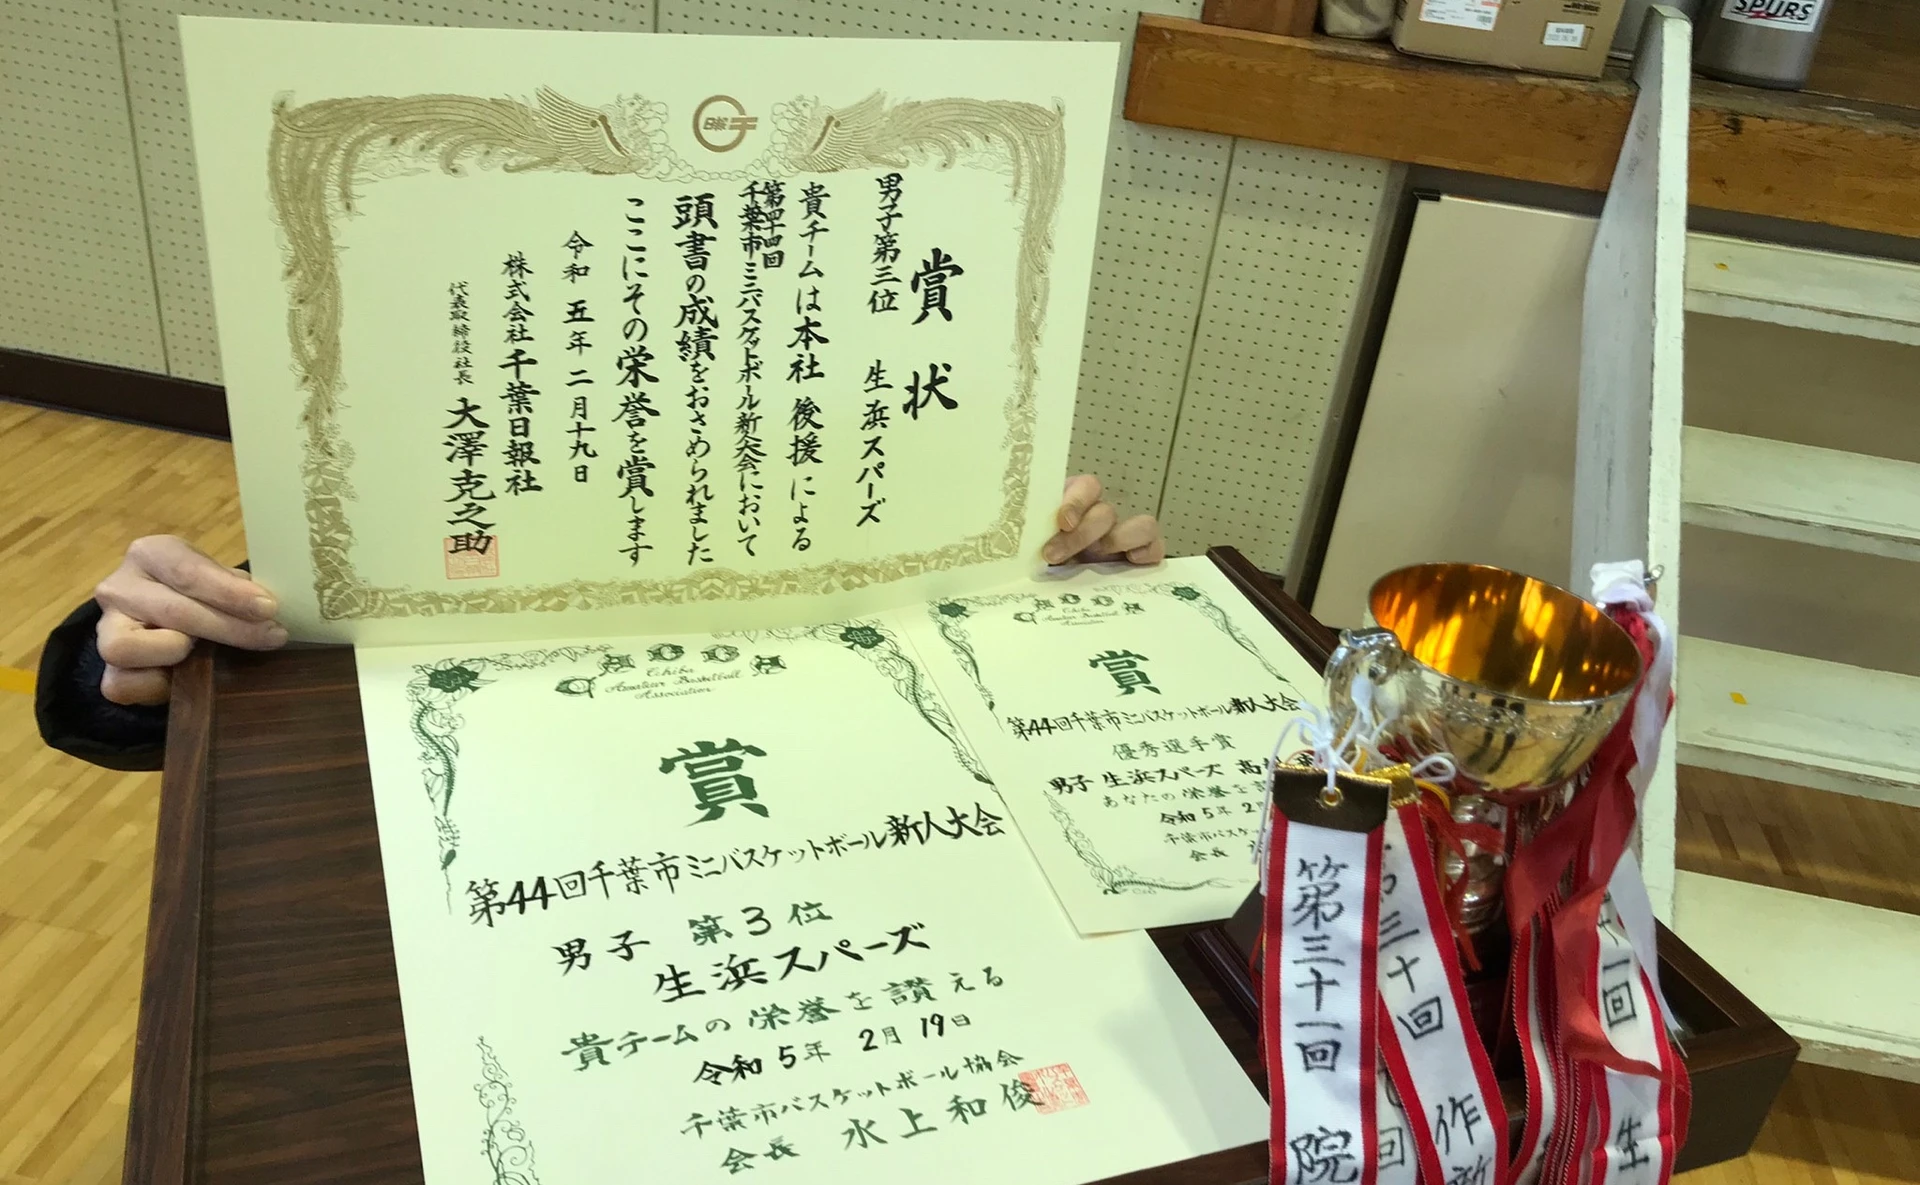 賞状
男子第三位 生浜スパーズ
貴チームは本社後援による
第四十四回
千葉市ミニバスケットボール新人大会において
頭書の成績をおさめられました
ここにその栄誉を賞します
令和五年二月十九日
株式会社千葉日報社
代表取締役社長 大澤克之助
Chiba
Amateur Basketball
Association
賞
第44回千葉市ミニバスケットボール新人大会
男子 第3位
生浜スパーズ
貴チームの栄誉を讃える
令和5年 2月19日
千葉市バスケットボール協会
会長 水上和俊
Chiba
Amateur Basketball
Association
賞
第44回千葉市ミニバスケットボール新人大会
優秀選手賞
男子 生浜スパーズ
あなたの栄誉を
令和5年
千葉市バスケッ
会長
第三十一回
院
三十回
作新
一回
生
SPURS